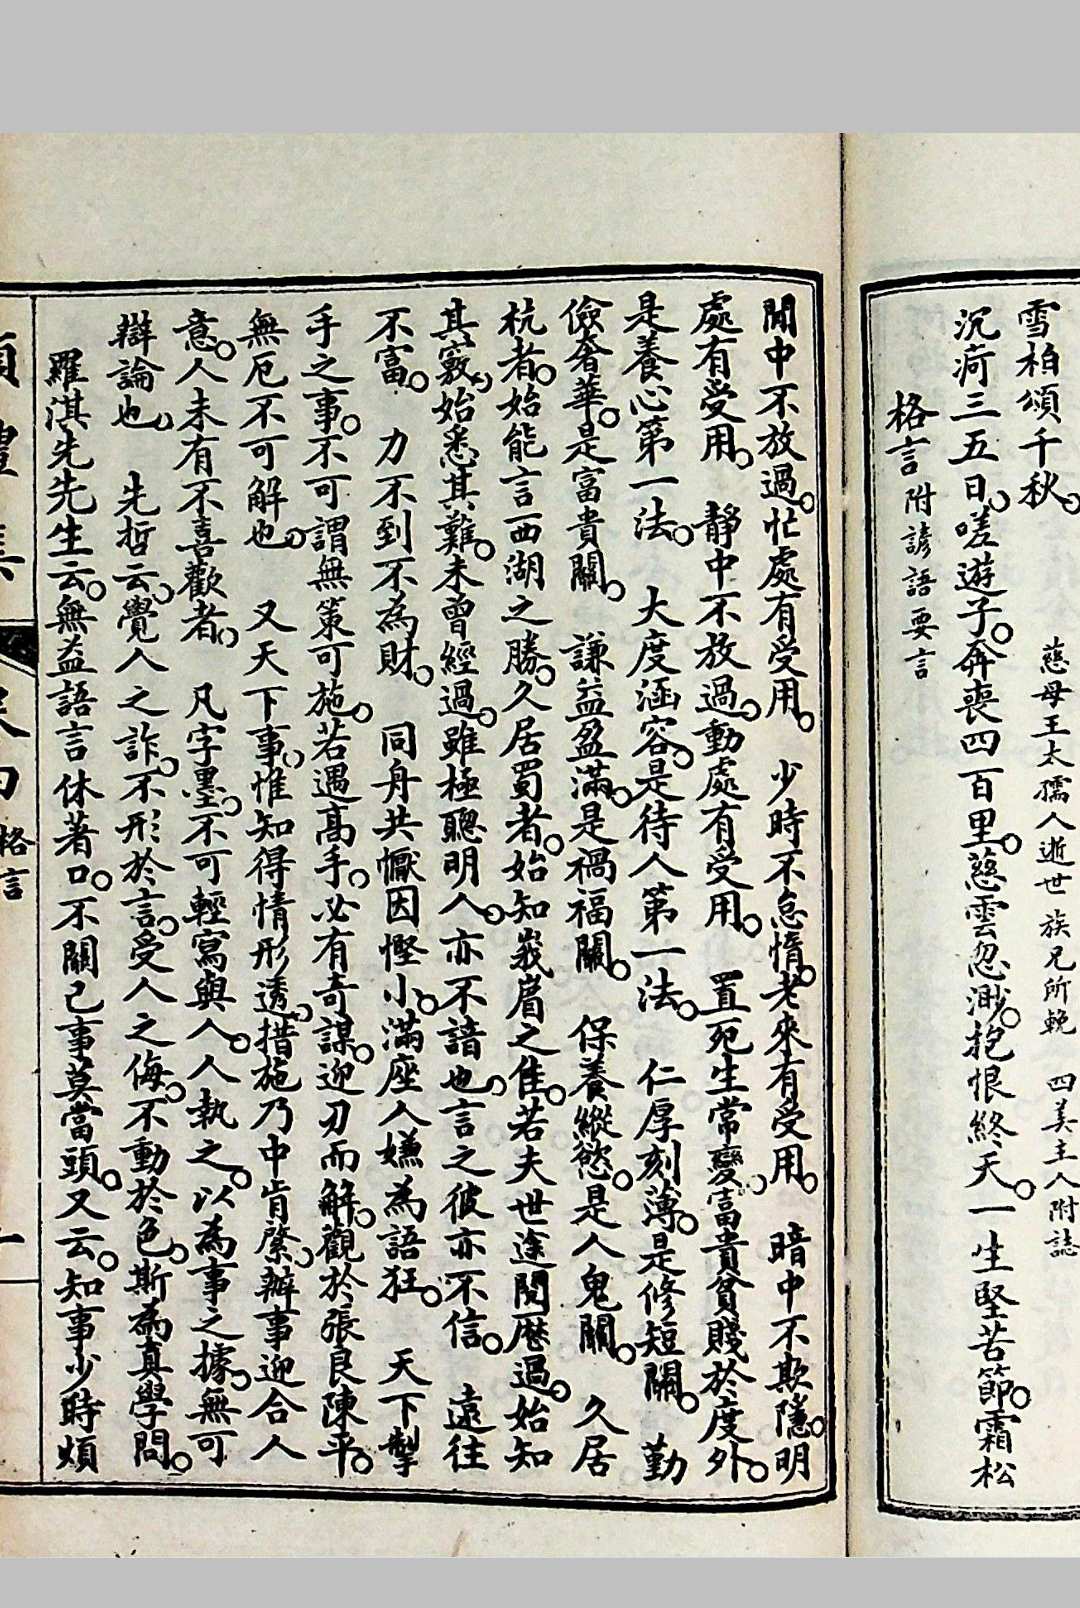 雪柏頌千秋。
慈母王太孺人逝世　族兄所輓　四美主人附誌
沉疴三五日、嗟遊子。奔喪四百里。慈雲忽渺。抱恨終天。一生堅苦節。霜松
格言　附諺語要言
閒中不放過、忙處有受用。　少時不怠惰。老來有受用。　暗中不欺隱。明
處有受用、　靜中不放過、動處有受用。　置死生常變、富貴貧賤於度外。
是養心第一法。　大度涵容。是待人第一法。　仁厚刻薄。是修短關。　勤
儉奢華。是富貴關。　謙益盈滿。是禍福關。　保養縱慾。是人鬼關。　久居
杭者。始能言西湖之勝。久居蜀者。始知峩眉之佳。若夫世途閱歷過。始知
其竅、始悉其難。未曾經過。雖極聰明人。亦不諳也、言之彼亦不信。　遠往
不富。　力不到不為財。　同舟共懨因慳小。滿座人嫌為語狂。　天下掣
手之事。不可謂無策可施。若遇高手。必有奇謀。迎刃而解。觀於張良陳平。
無厄不可解也、　又天下事、惟知得情形透、措施乃中肯綮、辦事迎合人
意。人未有不喜歡者、　凡字墨、不可輕寫與人。人執之。以為事之據、無可
辯論也、　先哲云、覺人之詐。不形於言。受人之侮、不動於色。斯為真學問。
羅淇先先生云。無益語言休著口。不關己事莫當頭。又云。知事少時煩
格言